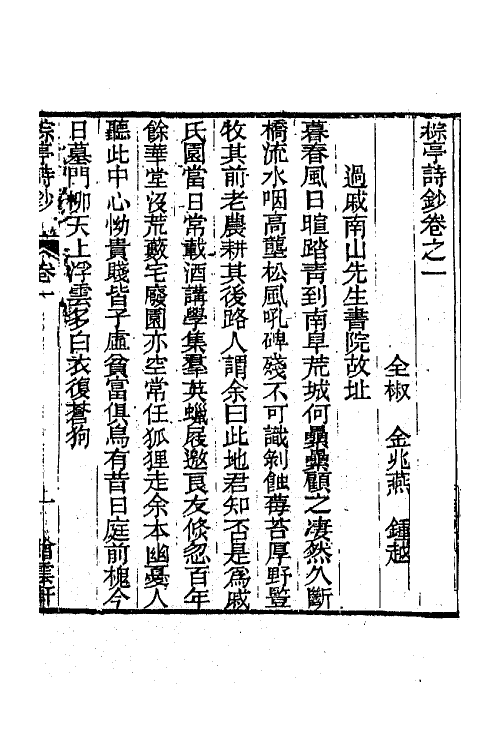 棕亭詩鈔卷之一
全椒　金兆燕　鍾越
過戚南山先生書院故址
暮春風日暄踏青到南阜荒城何纍纍顧之凄然久斷
橋流水咽高壟松風吼碑殘不可識剝蝕莓苔厚野豎
牧其前老農耕其後路人謂余曰此地君知否是為戚
氏園當日常載酒講學集羣英蠟屐邀良友倐忽百年
餘華堂沒荒藪宅廢園亦空常任狐狸走余本幽憂人
聽此中心怮貴賤皆子虛貧富俱烏有昔日庭前槐今
日墓門柳天上浮雲多白衣復蒼狗
棕亭詩鈔　卷一　一　贈雲軒